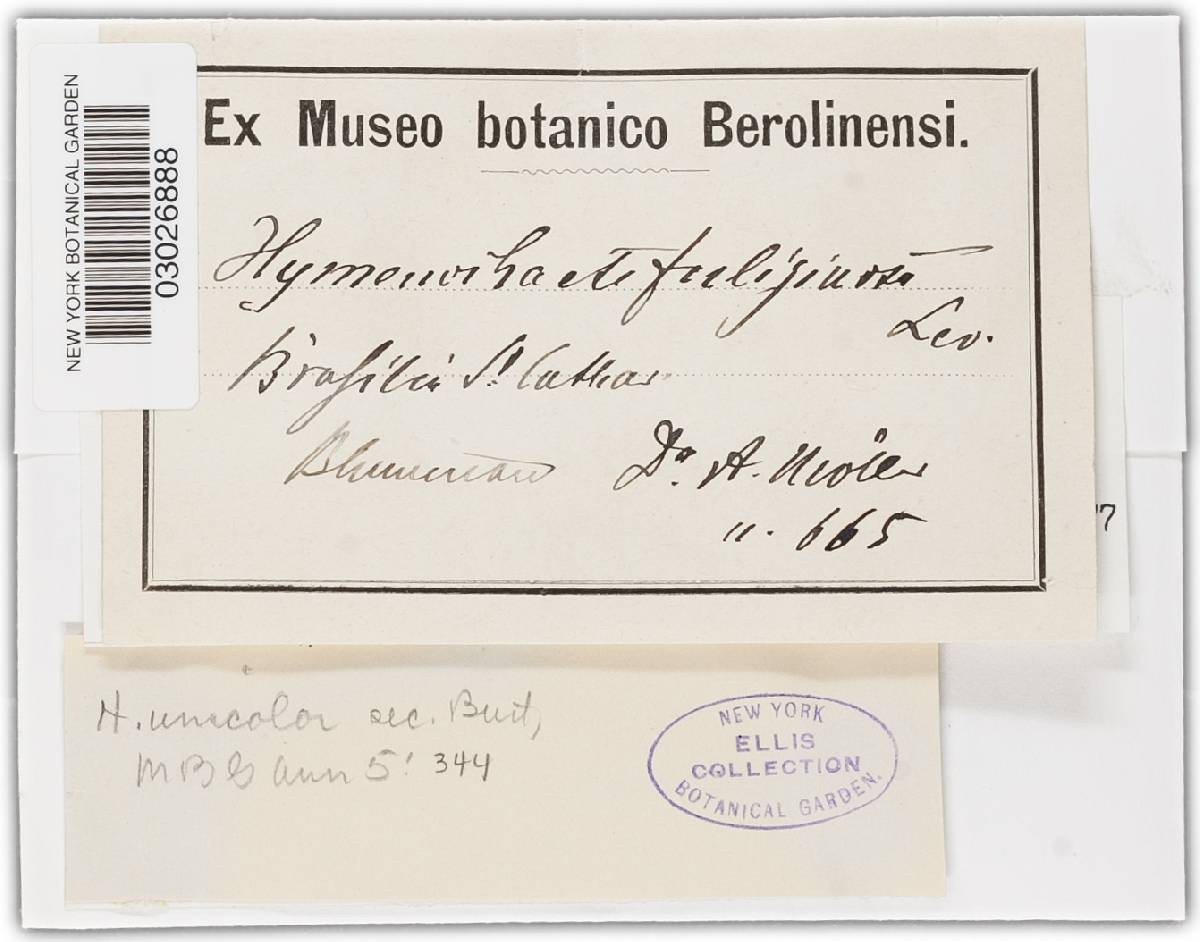 NEW YORK BOTANICAL GARDEN
03026888
Ex Museo botanico Berolinensi.
Hymenochaete fuliginosa
Lev.
Brasilia St. Cathar.
Blumenau Dr. A. Möller
n. 665
7
H. unicolor sec. Burt,
MBG Ann 5: 344
NEW YORK
ELLIS
COLLECTION
BOTANICAL GARDEN.